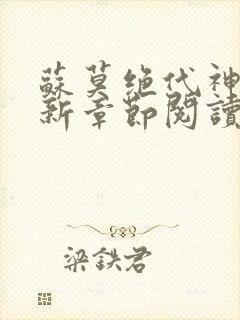 蘇莫絕代神
新章節閱讀
梁鉄君